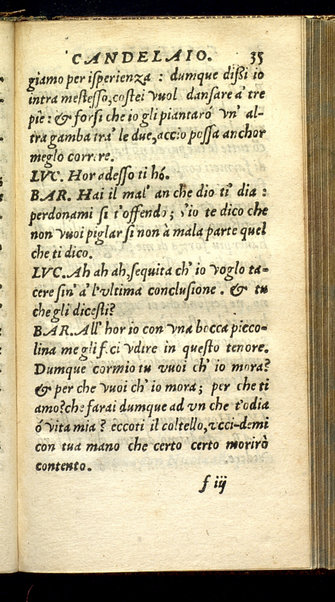 CANDELAIO. 35
giamo per isperienza : dumque dißi io
intra mestesso, costei vuol dansare a' tre
pie: & forsi che io gli piantaro' vn' al-
tra gamba tra' le due, accio possa anchor
meglo correre.
LVC. Hor adesso ti hó.
BAR. Hai il mal' an che dio ti dia :
perdonami si t'offendo; s'io te dico che
non vuoi piglar si non à mala parte quel
che ti dico.
LVC. Ah ah ah, sequita ch' io voglo ta-
cere sin' a' l'vltima conclusione . & tu
che gli dicesti?
BAR. All' hor io con vna bocca picco-
lina me gli feci vdire in questo tenore.
Dumque cormio tu vuoi ch' io mora?
& per che vuoi ch' io mora; per che ti
amo? che farai dumque ad vn che t'odia
ó vita mia ? eccoti il coltello, vcci-demi
con tua mano che certo certo morirò
contento.
f iij